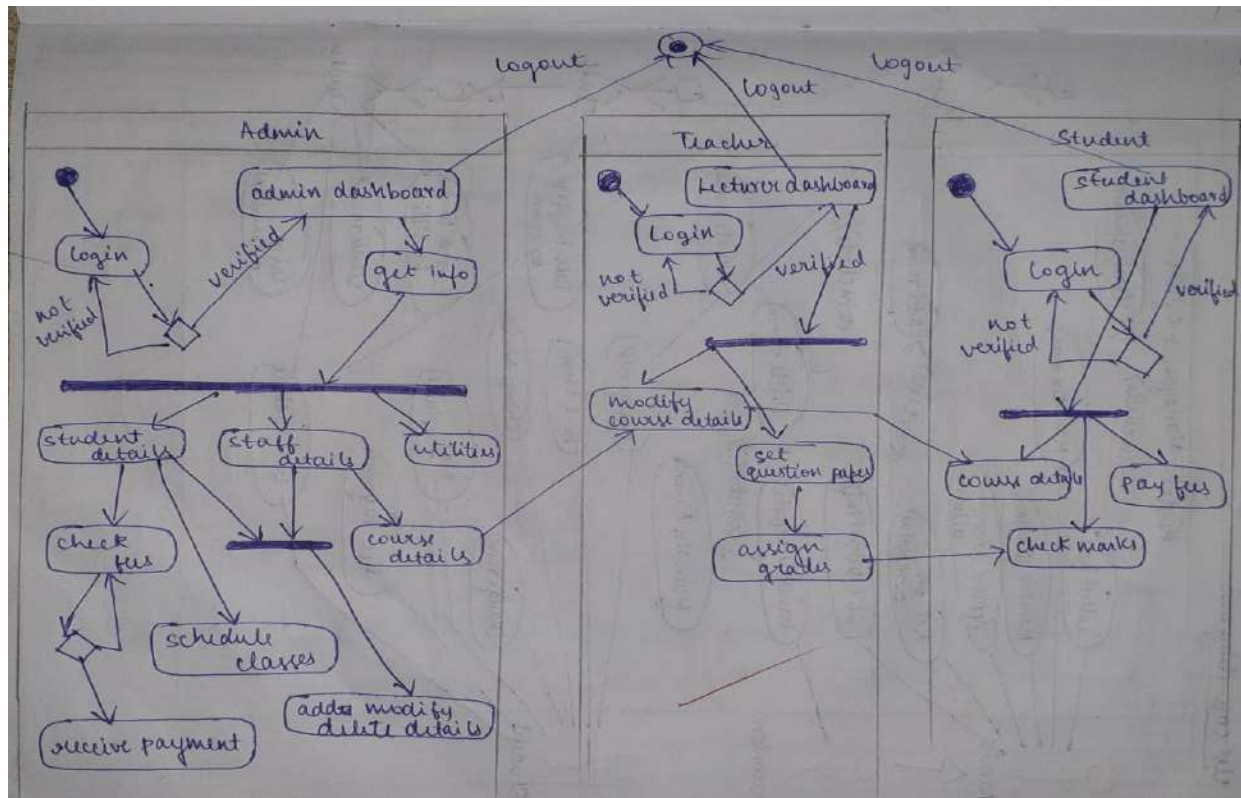 logout
logout
logout
Admin
admin dashboard
login
verified
get info
not
verified
student
details
staff
details
utilities
check
fees
course
details
schedule
classes
receive payment
modify
delete details
Teacher
Lecturer dashboard
Login
not
verified
verified
modify
course details
set
question paper
assign
grades
Student
student
dashboard
login
not
verified
verified
course details
pay fees
check marks